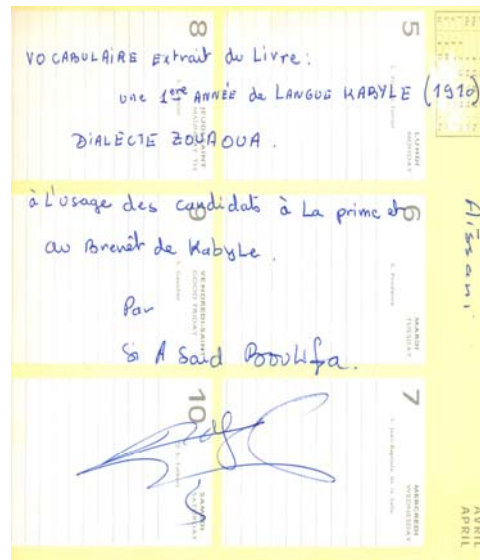 VOCABULAIRE Extrait du Livre:
une 1ère ANNÉE de LANGUE KABYLE (1910)
DIALECTE ZOUAOUA.
à L'usage des candidats à La prime et
au Brevêt de Kabyle.
Par
Si A Saïd BOULIFA.
Aïssani
5
LUNDI
MONDAY
6
MARDI
TUESDAY
7
MERCREDI
WEDNESDAY
8
JEUDI SAINT
9
VENDREDI-SAINT
GOOD FRIDAY
10
SAMEDI
SATURDAY
AVRIL
APRIL